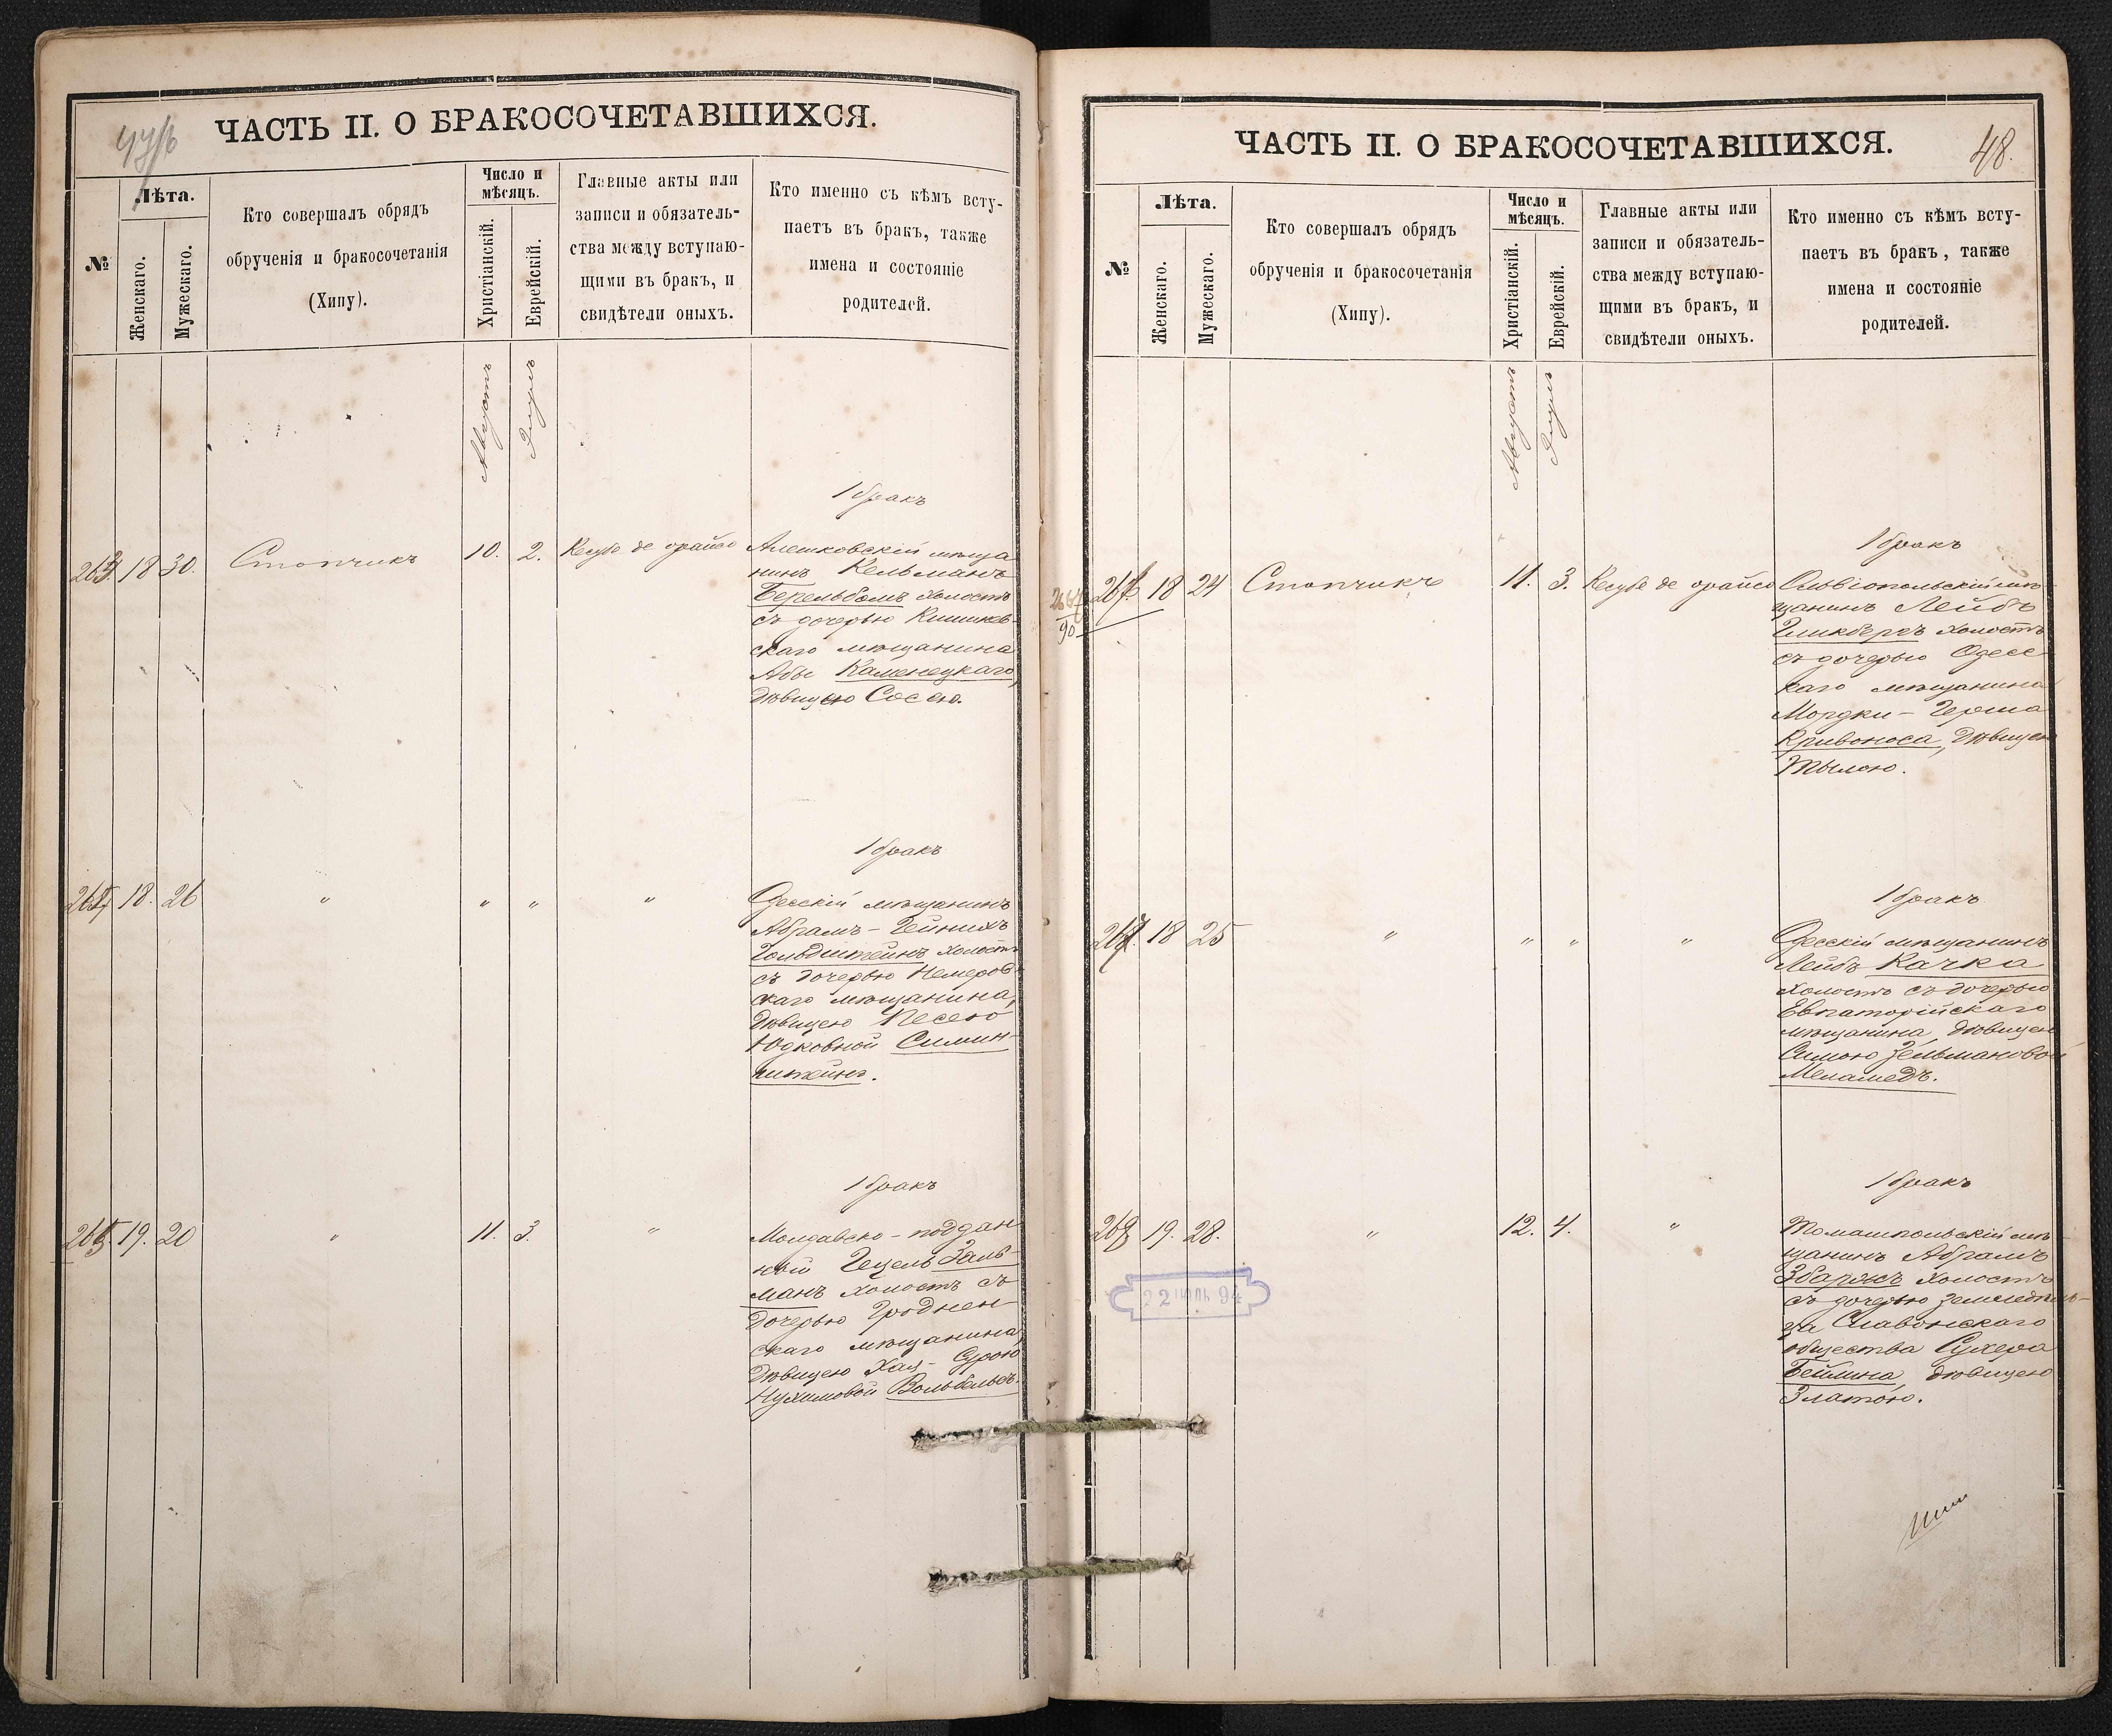 ЧАСТЬ II. О БРАКОСОЧЕТАВШИХСЯ.
№
Лѣта.
Женскаго.
Мужескаго.
Кто совершалъ обрядъ
обрученія и бракосочетанія
(Хипу).
Число и
мѣсяцъ.
Христіанскій.
Еврейскій.
Главные акты или
записи и обязатель-
ства между вступаю-
щими въ бракъ, и
свидѣтели оныхъ.
Кто именно съ кѣмъ всту-
паетъ въ бракъ, также
имена и состояніе
родителей.
Августъ
Элулъ
1 бракъ
18 30. Стопчикъ 10. 2. Кесубе де орайсо
Алешковскій мѣща
нинъ Кельманъ
Берельбомъ холостъ
съ дочерью Кишинев-
скаго мѣщанина
Абы Каменецкаго,
дѣвицею Сосею.
1 бракъ
18. 26 " " " "
Одесскій мѣщанинъ
Абрамъ-Гейнихъ
Гольдштейнъ холостъ
съ дочерью Немеров-
скаго мѣщанина,
дѣвицею Песею
Юдковной Симин-
штейнъ.
1 бракъ
19. 20 " 11. 3. "
Молдавско-поддан
ный Гецель Заль-
манъ холостъ съ
дочерью Гроднен
скаго мѣщанина,
дѣвицею Хая-Сурою
Нухимовой
ЧАСТЬ II. О БРАКОСОЧЕТАВШИХСЯ.
48.
№
Лѣта.
Женскаго.
Мужескаго.
Кто совершалъ обрядъ
обрученія и бракосочетанія
(Хипу).
Число и
мѣсяцъ.
Христіанскій.
Еврейскій.
Главные акты или
записи и обязатель-
ства между вступаю-
щими въ бракъ, и
свидѣтели оныхъ.
Кто именно съ кѣмъ всту-
паетъ въ бракъ, также
имена и состояніе
родителей.
Августъ
Элулъ
1 бракъ
90
18 24 Стопчикъ 11. 3. Кесубе де орайсо
Ольвіопольскій мѣ-
щанинъ Лейбъ
Гликбергъ холостъ
съ дочерью Одесс
каго мѣщанина
Мордки-Герша
Кривоноса, дѣвицею
Тылею.
1 бракъ
18 25 " " " "
Одесскій мѣщанинъ
Лейбъ Качка
холостъ съ дочерью
Евпаторійскаго
мѣщанина, дѣвицею
Симою Зельмановой
Меламедъ.
1 бракъ
268 19. 28. " 12. 4. "
Томашпольскій мѣ-
щанинъ Абрамъ
Збаржъ холостъ
съ дочерью земледѣль-
ца Славонскаго
общества Сухера
Беймина, дѣвицею
Златою.
22 94